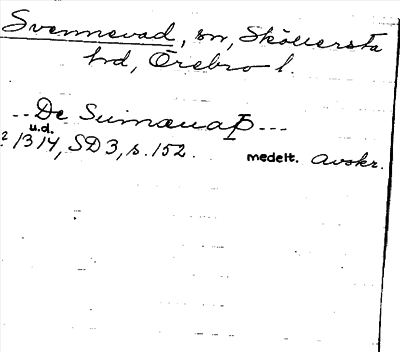 Svennevad, sn, Sköllersta
hd, Örebro l.
-- De Suinæuaþ ---
u.d.
? 1314, SD 3, s. 152. medelt. Avskr.